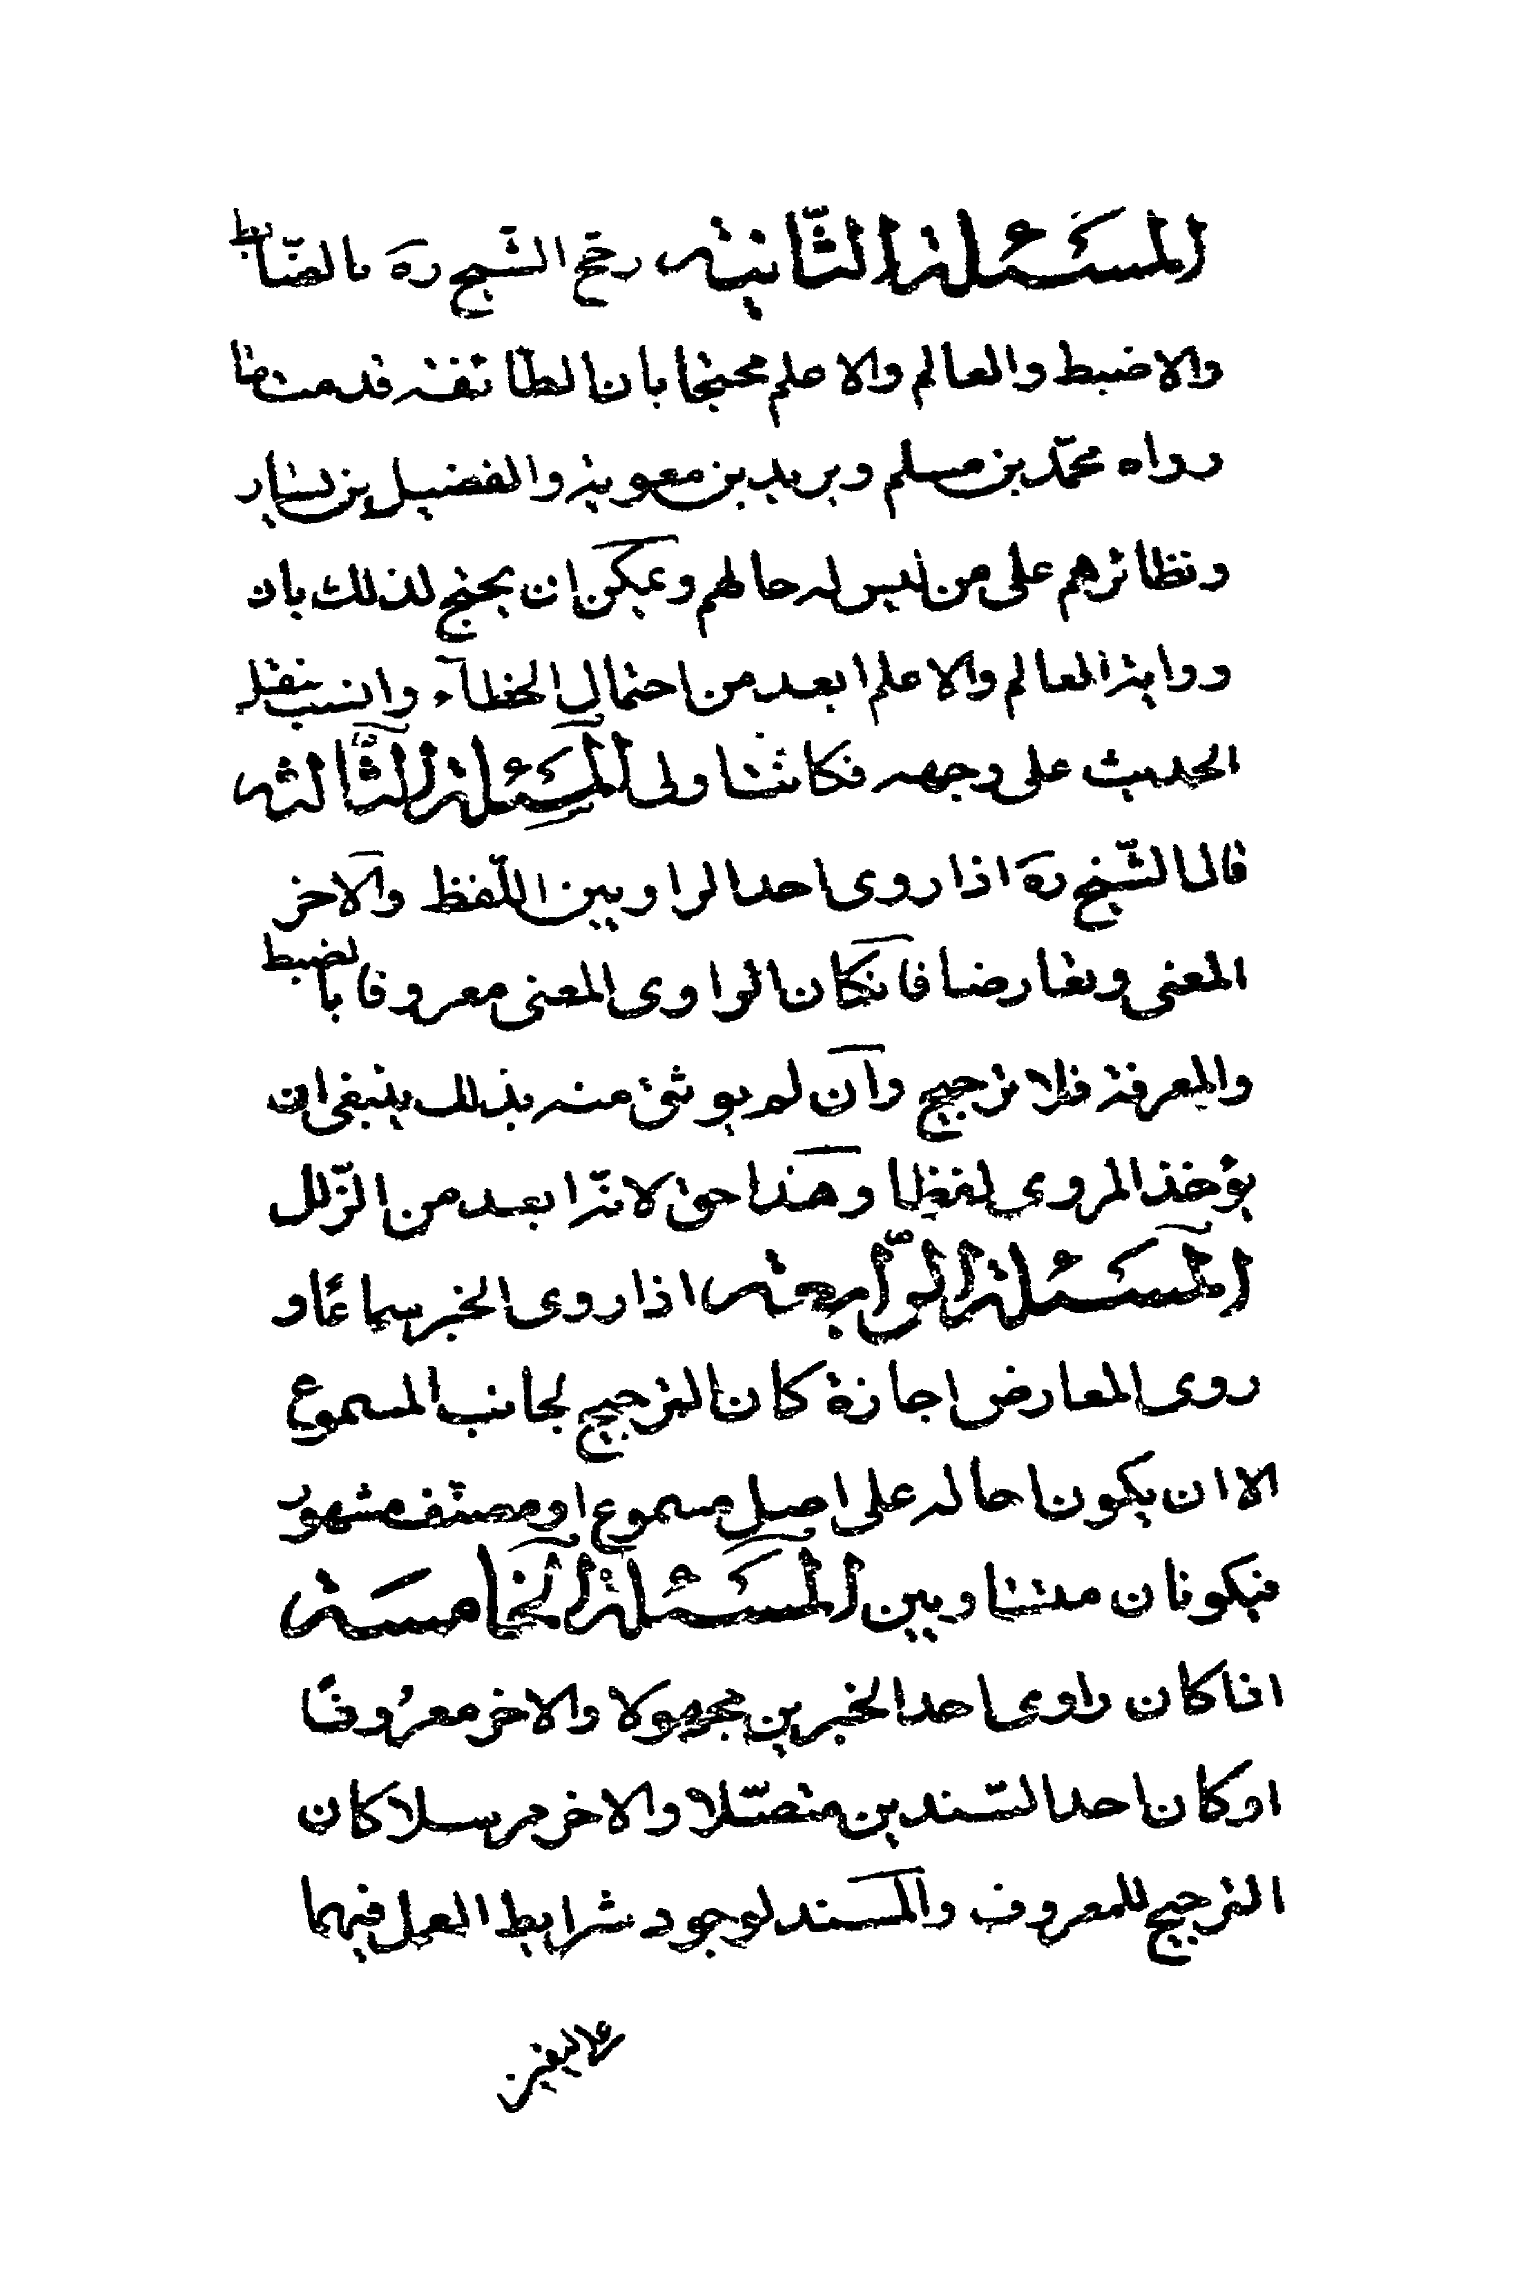 المسئلة الثانية رجّح الشّيخ ره بالضّابط
والاضبط والعالم والاعلم محتجا بان الطائفه قدمت ما
رواه محمّد بن مسلم وبريد بن معوية والفضيل بن يسار
ونظائرهم على من ليس له حالهم ويمكن ان يحتج لذلك بان
رواية العالم والاعلم ابعد من احتمال الخطآء وانسب بنقل
الحديث على وجهه فكانتا اولى المسئلة الثّالثه
قال الشّيخ ره اذا روى احد الراويين اللّفظ والاخر
المعنى وتعارضا فانكان الراوى المعنى معروفا بالضبط
والمعرفة فلا ترجيح وان لم يوثق منه بذلك ينبغى ان
يؤخذ المروى لفظا وهذا حق لانّه ابعد من الزّلل
المسئلة الرّابعة اذا روى الخبر سماعًا و
روى المعارض اجازة كان الترجيح لجانب المسموع
الا ان يكون احاله على اصل مسموع او مصنّف مشهور
فيكونان متساويين المسئلة الخامسة
اذا كان راوى احد الخبرين مجهولا والاخر معروفًا
او كان احد السّندين متصّلا والاخر مرسلا كان
الترجيح للمعروف والمسند لوجود شرايط العمل فيهما